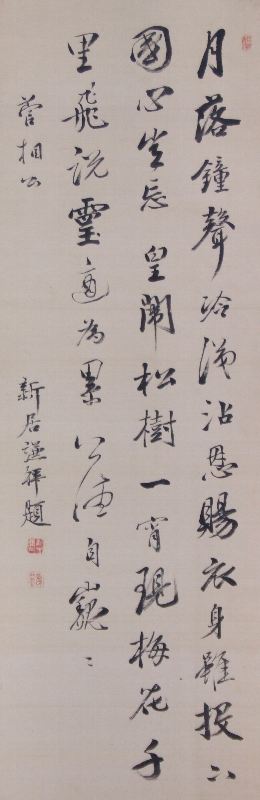 月落鐘聲冷涕沾恩賜衣身雖投下
國心豈忘皇闈松樹一宵現梅花千
里飛說靈適為累公德自巍〻
菅相公
新居謙拜題